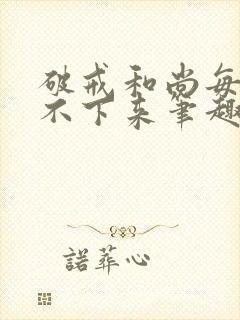 破戒和尚每
不下来笔趣
諾葬心